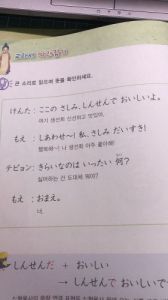 큰 소리로 읽으며 뜻을 확인하세요.
げんた : ここの さしみ、しんせんで おいしいよ。
여기 생선회 신선하고 맛있어.
もえ : しあわせ〜! 私、さしみ だいすき!
행복해~! 나 생선회 아주 좋아해!
チヒョン : きらいなのは いったい 何?
싫어하는 건 도대체 뭐야?
もえ : おまえ。
너.
しんせんだ + おいしい
→ しんせんで おいしい